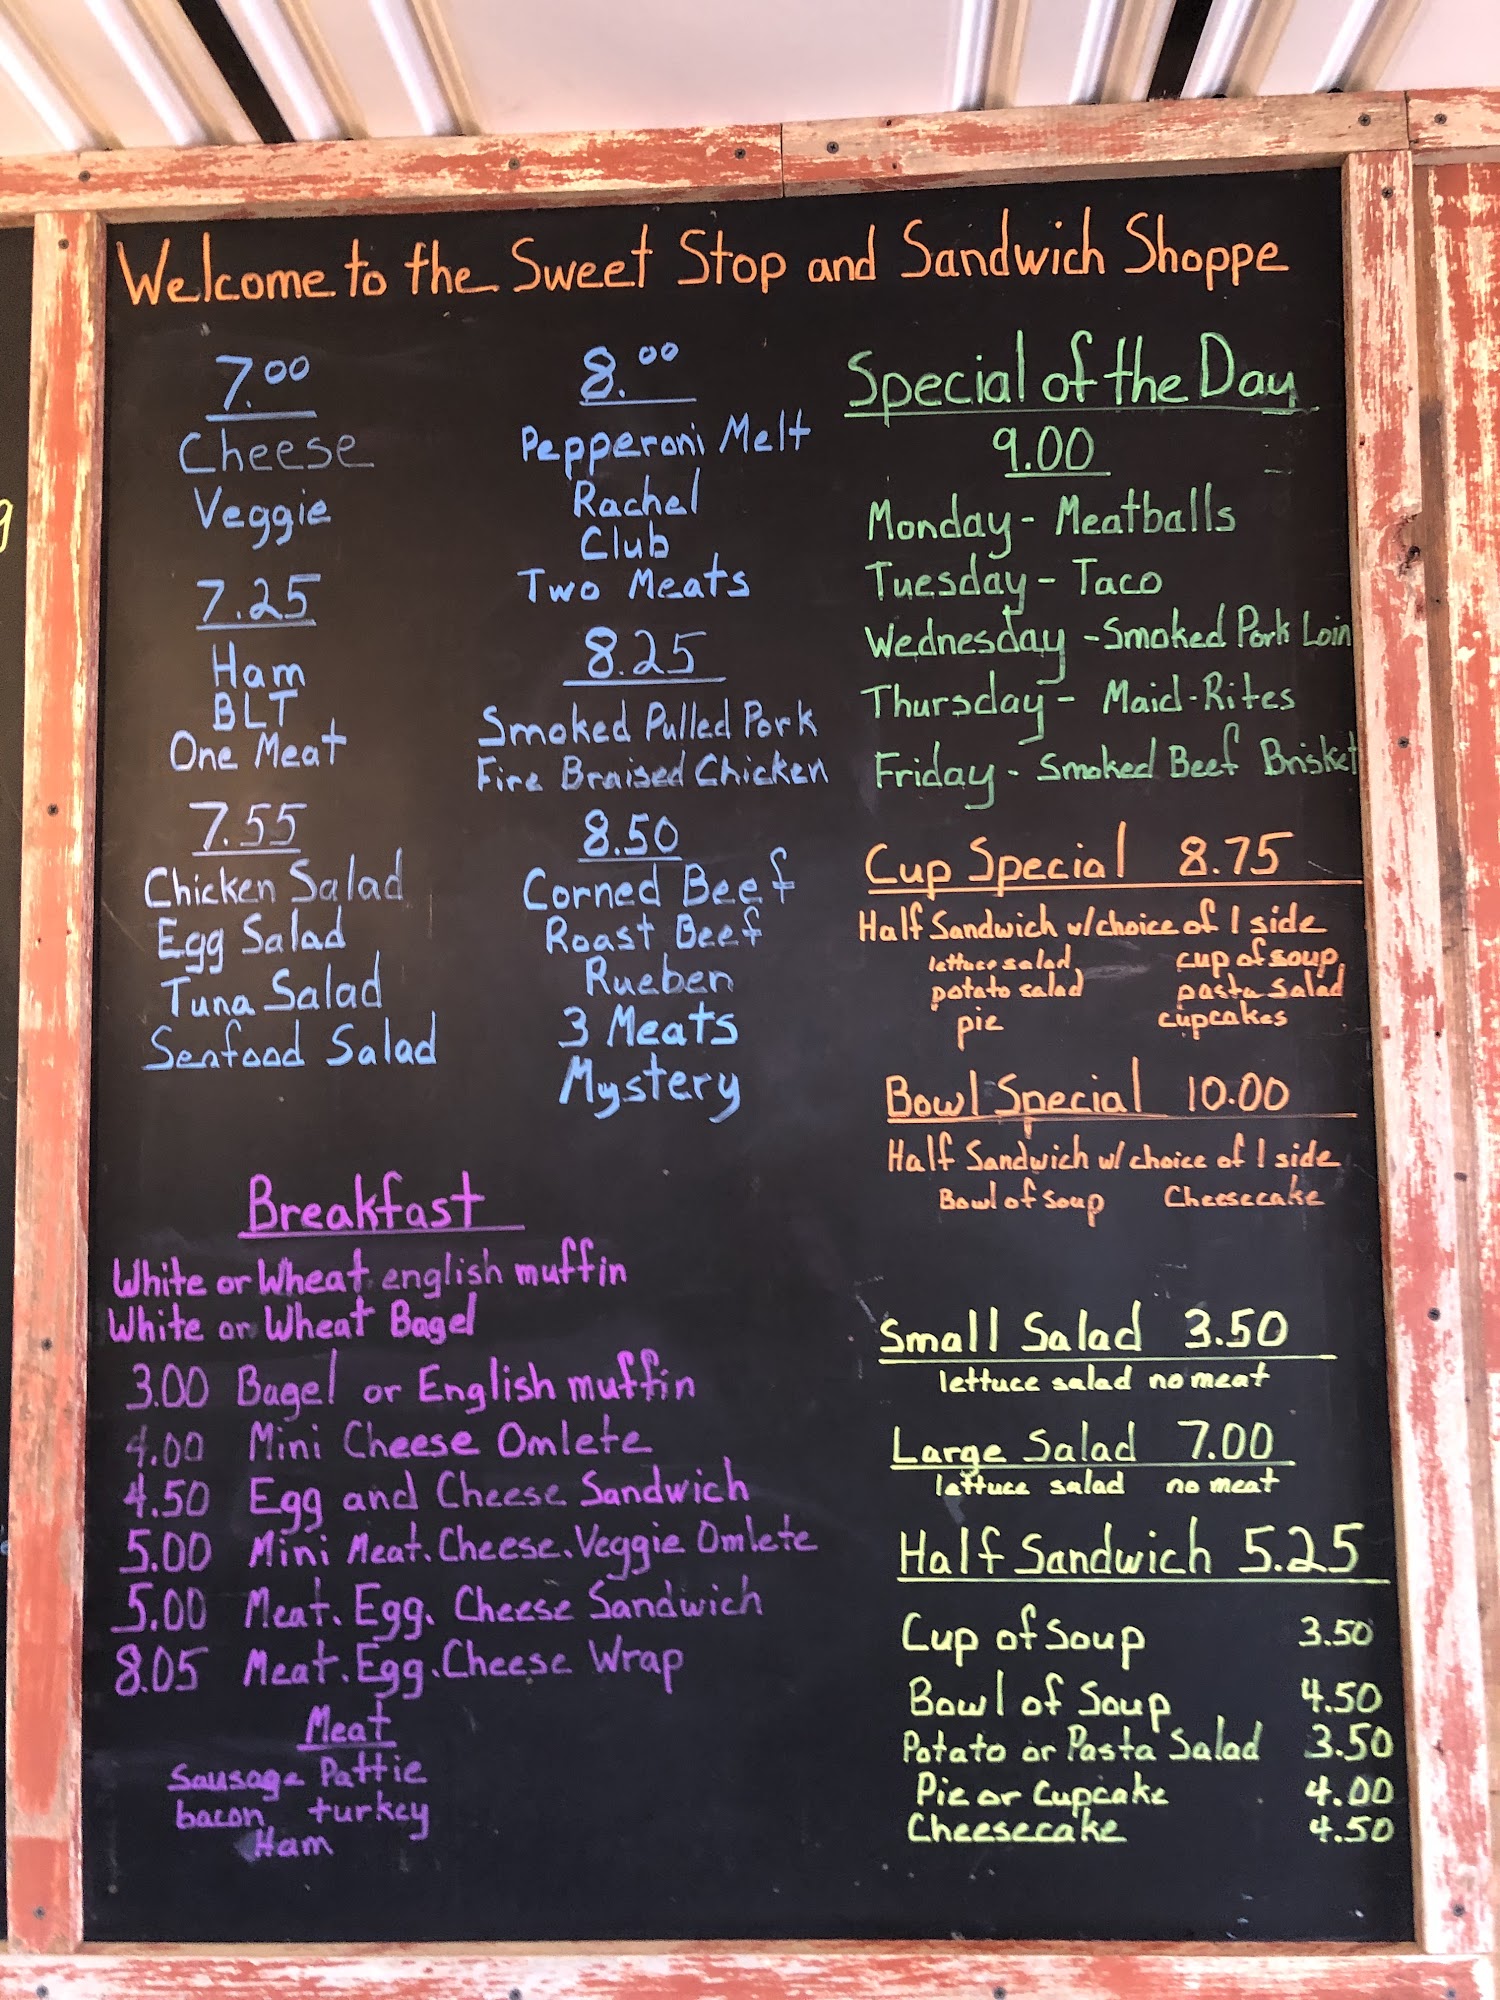 Welcome to the Sweet Stop and Sandwich Shoppe
7.00
Cheese
Veggie
7.25
Ham
BLT
One Meat
7.55
Chicken Salad
Egg Salad
Tuna Salad
Seafood Salad
8.00
Pepperoni Melt
Rachel
Club
Two Meats
8.25
Smoked Pulled Pork
Fire Braised Chicken
8.50
Corned Beef
Roast Beef
Rueben
3 Meats
Mystery
Special of the Day
9.00
Monday - Meatballs
Tuesday - Taco
Wednesday - Smoked Pork Loin
Thursday - Maid-Rites
Friday - Smoked Beef Brisket
Cup Special 8.75
Half Sandwich w/choice of 1 side
lettuce salad cup of soup
potato salad pasta salad
pie cupcakes
Bowl Special 10.00
Half Sandwich w/ choice of 1 side
Bowl of soup Cheesecake
Breakfast
White or Wheat english muffin
White or Wheat Bagel
3.00 Bagel or English muffin
4.00 Mini Cheese Omlete
4.50 Egg and Cheese Sandwich
5.00 Mini Meat.Cheese.Veggie Omlete
5.00 Meat.Egg.Cheese Sandwich
8.05 Meat.Egg.Cheese Wrap
Meat
Sausage Pattie
bacon turkey
Ham
Small Salad 3.50
lettuce salad no meat
Large Salad 7.00
lettuce salad no meat
Half Sandwich 5.25
Cup of Soup 3.50
Bowl of Soup 4.50
Potato or Pasta Salad 3.50
Pie or Cupcake 4.00
Cheesecake 4.50